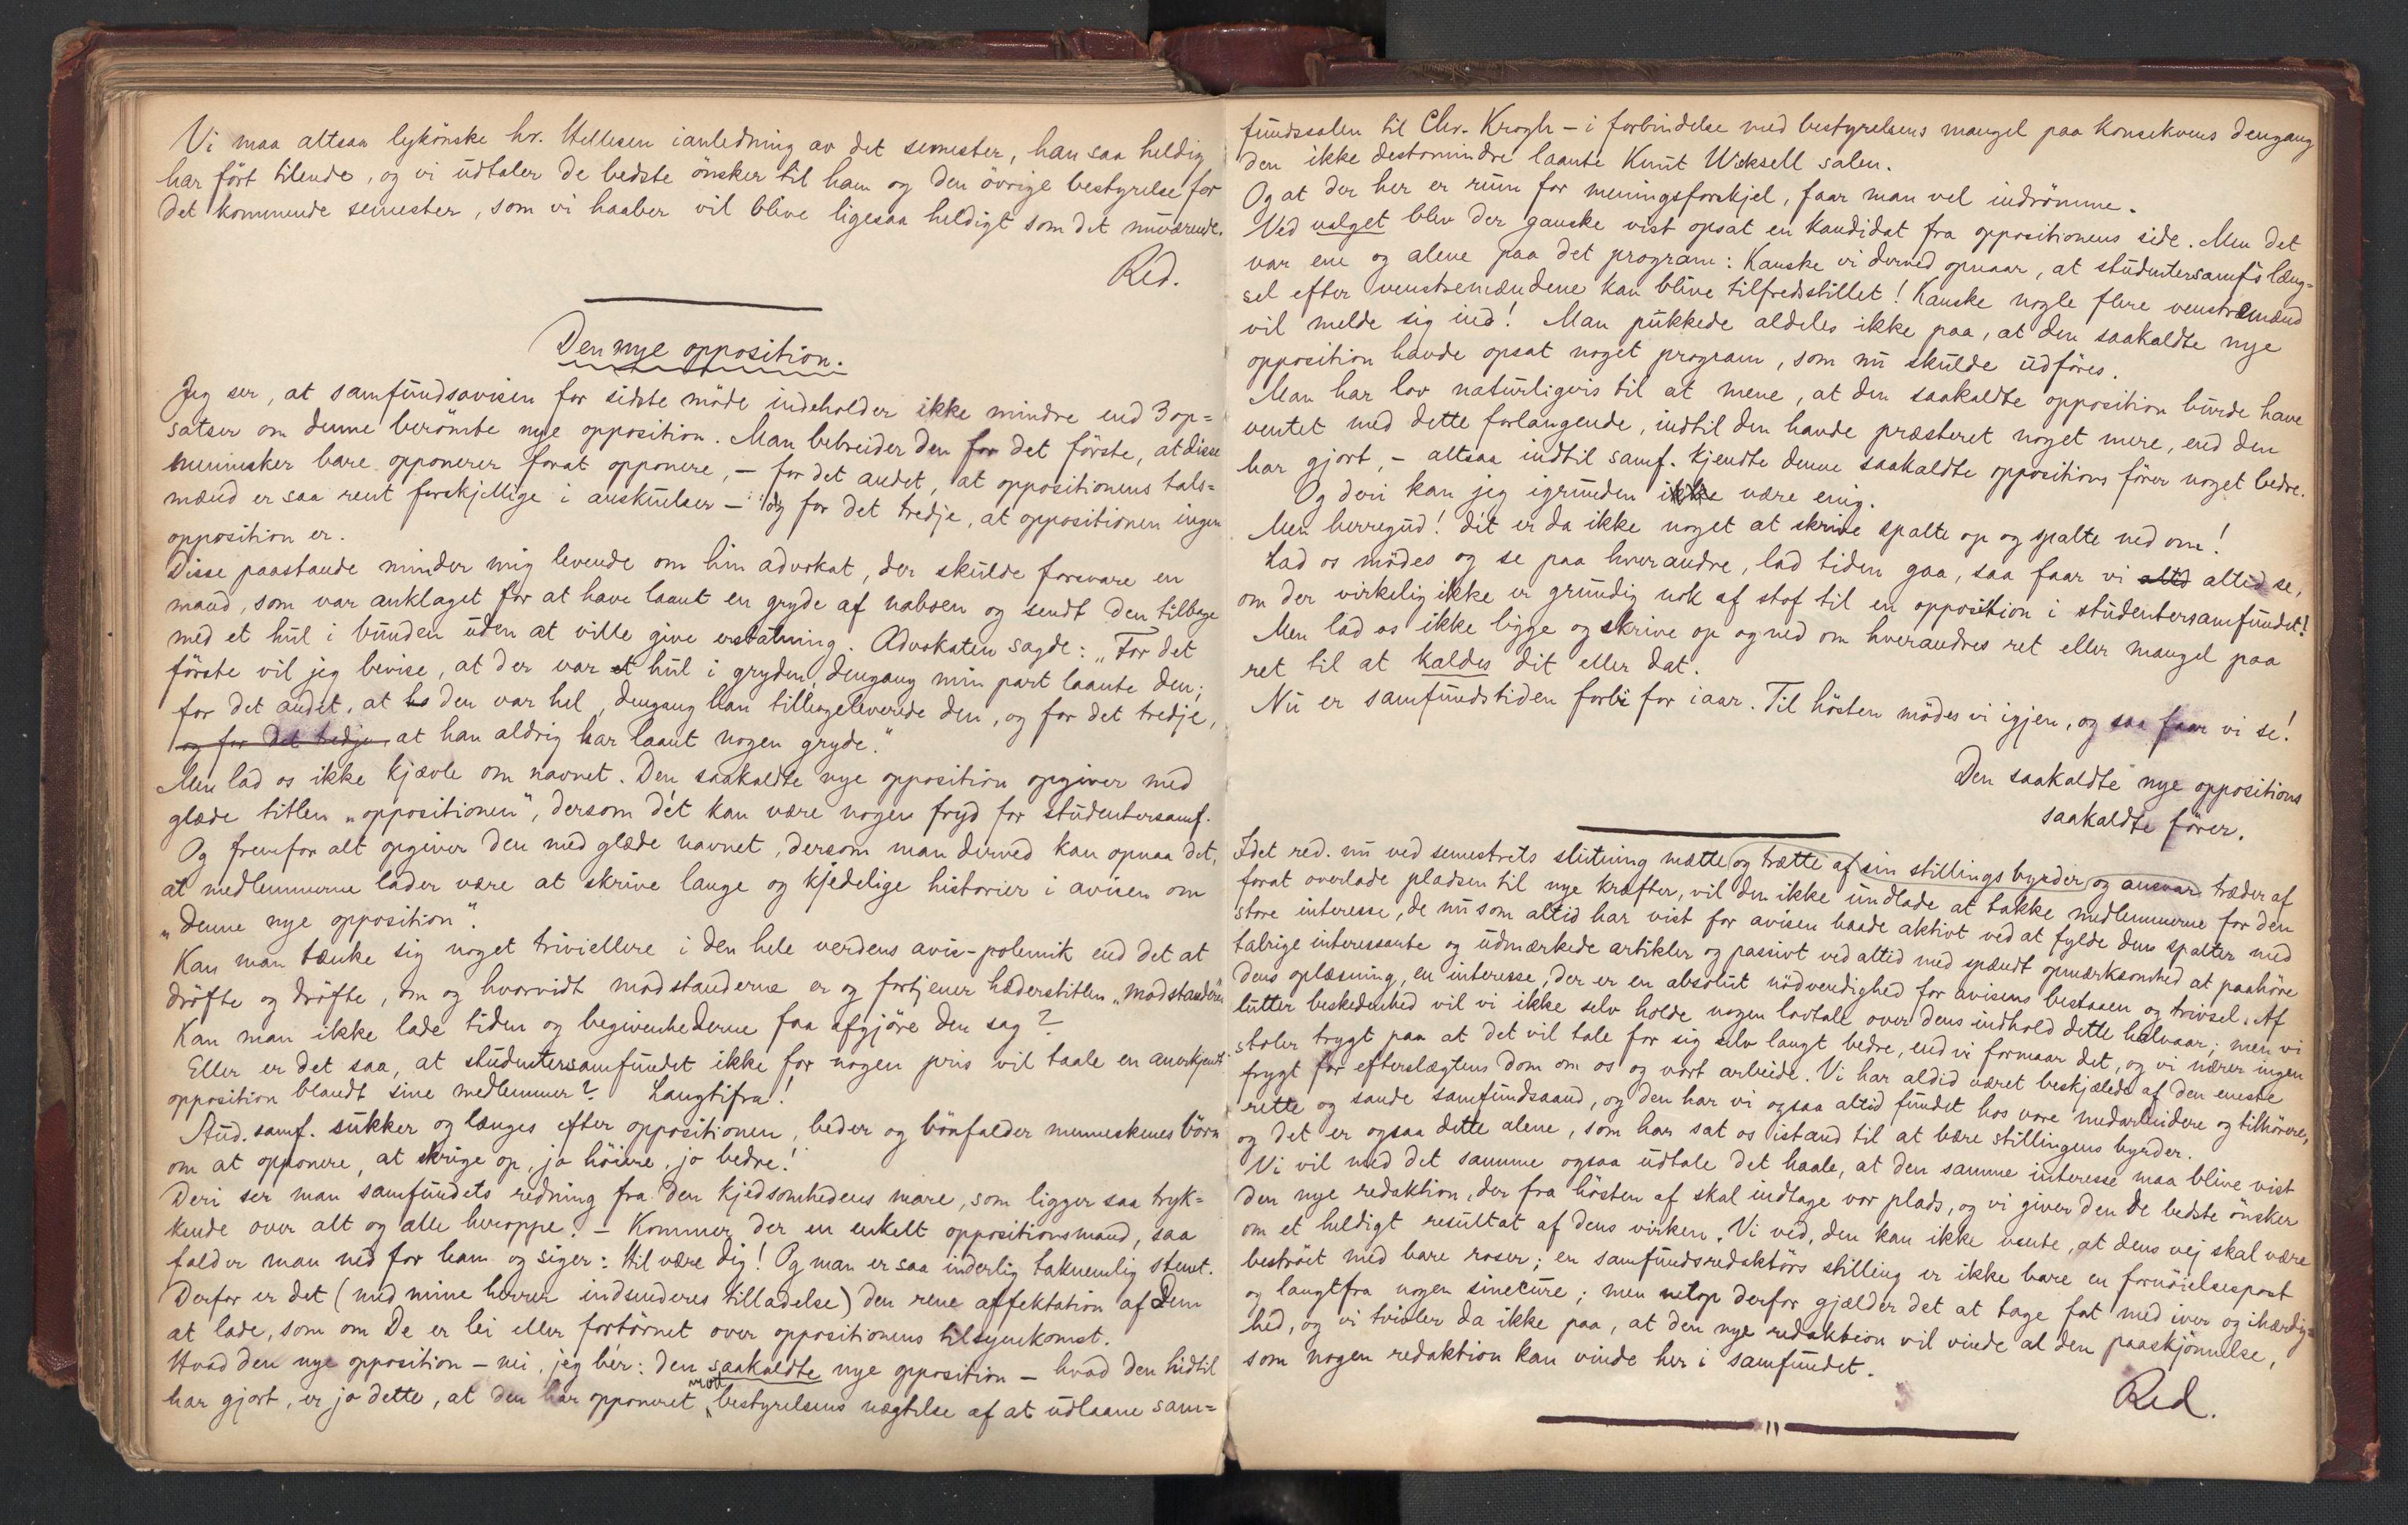 Vi maa altsaa lykönske hr. Hellesen ianledning av det semester, han saa heldig
har fört tilende, og vi udtaler de bedste önsker til ham og den övrige bestyrelse for
det kommende semester, som vi haaber vil blive ligesaa heldigt som det nuværende.
Red.
Den nye opposition.
Jeg ser, at samfundsavisen for sidste möde indeholder ikke mindre end 3 op=
satser om denne berömte nye opposition. Man bebreider den for det förste, at disse
mennesker bare opponerer forat opponere, – for det andet, at oppositionens tals=
mænd er saa rent forskjellige i anskuelser – og for det tredje, at oppositionen ingen
opposition er.
Disse paastande minder mig levende om hin advokat, der skulde forsvare en
mand, som var anklaget for at have laant en gryde af naboen og sendt den tilbage
med et hul i bunden uden at ville give erstatning. Advokaten sagde: „For det
förste vil jeg bevise, at der var et hul i gryden, dengang min part laante den;
for det andet, at ha den var hel, dengang han tilbageleverede den, og for det tredje,
og for det tredje, at han aldrig har laant nogen gryde.“
Men lad os ikke kjævle om navnet. Den saakaldte nye opposition opgiver med
glæde titlen „oppositionen“, dersom dét kan være nogen fryd for studentersamf.
Og fremfor alt opgiver den med glæde navnet, dersom man derved kan opnaa det,
at medlemmerne lader være at skrive lange og kjedelige historier i avisen om
„denne nye opposition“.
Kan man tænke sig noget triviellere i den hele verdens avis-polemik end det at
dröfte og dröfte, om og hvorvidt modstanderne er og fortjener hæderstitlen „modstandere“
Kan man ikke lade tiden og begivenhederne faa afgjöre den sag?
Eller er det saa, at studentersamfundet ikke for nogen pris vil taale en anerkjendt
opposition blandt sine medlemmer? Langtifra!
Stud. samf. sukker og længes efter oppositionen, beder og bönfalder menneskenes börn
om at opponere, at skrige op, jo höiere, jo bedre!
Deri ser man samfundets redning fra den kjedsomhedens mare, som ligger saa tryk=
kende over alt og alle heroppe. – Kommer der en enkelt oppositionsmand, saa
falder man ned for ham og siger: Hil være dig! Og man er saa inderlig taknemlig stemt.
Derfor er det (med mine herrer indsenderes tilladelse) den rene affektation af Dem
at lade, som om De er lei eller fortörnet over oppositionens tilsynekomst.
Hvad den nye opposition – nei, jeg bér: den saakaldte nye opposition – hvad den hidtil
har gjort, er jo dette, at den har opponeret mod bestyrelsens nægtelse af at udlaane sam=
fundssalen til Chr. Krogh – i forbindelse med bestyrelsens mangel paa konsekvens dengang
den ikke destomindre laante Knut Wicksell salen.
Og at der her er rum for meningsforskjel, faar man vel indrömme.
Ved valget blev der ganske vist opsat en kandidat fra oppositionens side. Men det
var ene og alene paa det program: Kanske vi derved opnaar, at studentersamf's læng=
sel efter venstremændene kan blive tilfredsstillet! Kanske nogle flere venstremænd
vil melde sig ind! Man pukkede aldeles ikke paa, at den saakaldte nye
opposition havde opsat noget program, som nu skulde udföres.
Man har lov naturligvis til at mene, at den saakaldte opposition burde have
ventet med dette forlangende, indtil den havde præsteret noget mere, end den
har gjort, – altsaa indtil samf. kjendte denne saakaldte oppositions förer noget bedre.
Og deri kan jeg igrunden ikke være enig.
Men herregud! det er da ikke noget at skrive spalte op og spalte ned om!
Lad os mödes og se paa hverandre, lad tiden gaa, saa faar vi altid altid se,
om der virkelig ikke er grundig nok af stof til en opposition i studentersamfundet!
Men lad os ikke ligge og skrive op og ned om hverandres ret eller mangel paa
ret til at kaldes dit eller dat.
Nu er samfundstiden forbi for iaar. Til hösten mödes vi igjen, og saa faar vi se!
Den saakaldte nye oppositions
saakaldte förer.
Idet red. nu ved semestrets slutning mætte og trætte af sin stillings byrder og ansvar træder af
forat overlade pladsen til nye kræfter, vil den ikke undlade at takke medlemmerne for den
store interesse, de nu som altid har vist for avisen baade aktivt ved at fylde dens spalter med
talrige interessante og udmærkede artikler og passivt ved altid med spændt opmærksomhed at paahöre
dens oplæsning, en interesse, der er en absolut nödvendighed for avisens bestaaen og trivsel. Af
lutter beskedenhed vil vi ikke selv holde nogen lovtale over dens indhold dette halvaar; men vi
stoler trygt paa at det vil tale for sig selv langt bedre, end vi formaar det, og vi nærer ingen
frygt for efterslægtens dom om os og vort arbeide. Vi har altid været beskjælede af den eneste
rette og sande samfundsaand, og den har vi ogsaa altid fundet hos vore medarbeidere og tilhörere,
og det er ogsaa dette alene, som har sat os istand til at bære stillingens byrder.
Vi vil med det samme ogsaa udtale det haab, at den samme interesse maa blive vist
den nye redaktion, der fra hösten af skal indtage vor plads, og vi giver den de bedste önsker
om et heldigt resultat af dens virken. Vi ved, den kan ikke vente, at dens vej skal være
beströet med bare roser; en samfundsredaktörs stilling er ikke bare en fornöielsespost
og langtfra nogen sinecure; men netop derfor gjælder det at tage fat med iver og ihærdig=
hed, og vi tviler da ikke paa, at den nye redaktion vil vinde al den paaskjönnelse,
som nogen redaktion kan vinde her i samfundet.
Red.